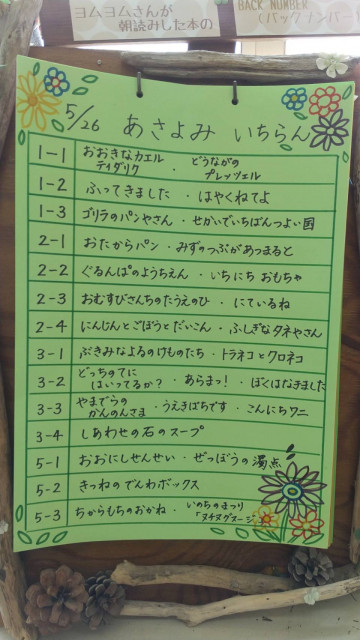 ヨムヨムさんが
朝読みした本の
BACK NUMBER
(バックナンバー
5/26 あさよみ いちらん
1-1 おおきなカエル ティダリク ・ どうながの プレッツェル
1-2 ふってきました ・ はやくねてよ
1-3 ゴリラのパンやさん ・ せかいでいちばんつよい国
2-1 おたからパン ・ みずのつぶがあつまると
2-2 ぐるんぱのようちえん ・ いちにち おもちゃ
2-3 おむすびさんちのたうえのひ ・ にているね
2-4 にんじんとごぼうとだいこん ・ ふしぎなタネやさん
3-1 ぶきみなよるのけものたち ・ トラネコとクロネコ
3-2 どっちのてに はいってるか? ・ あらまっ! ・ ぼくはなきました
3-3 やまでらの かんのんさま ・ うえきばちです ・ こんにちワニ
3-4 しあわせの石のスープ
5-1 おおにしせんせい ・ ぜっぼうの濁点
5-2 きつねのでんわボックス
5-3 ちからもちのおかね ・ いのちのまつり 「ヌチヌグスージ」